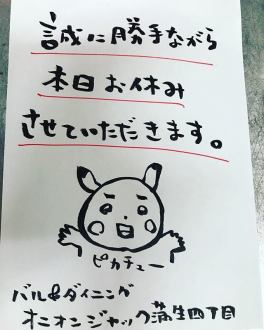 誠に勝手ながら
本日お休み
させていただきます。
ピカチュー
バル&ダイニング
オニオンジャック蒲生四丁目